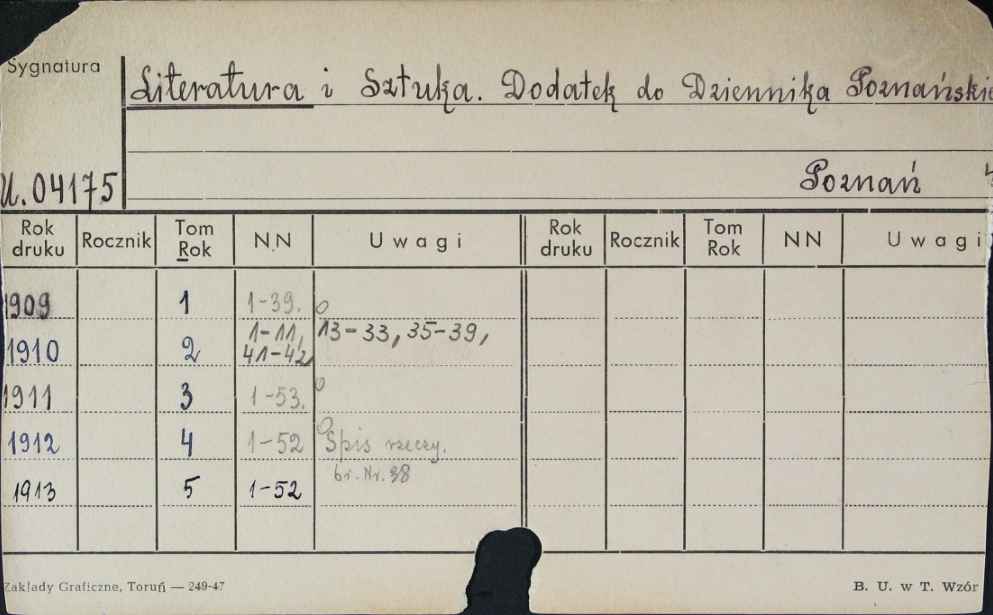 Sygnatura
Literatura i Sztuka. Dodatek do Dziennika Poznańskie
U.04175
Poznań
Rok druku Rocznik Tom Rok NN Uwagi Rok druku Rocznik Tom Rok NN Uwagi
1909 1 1-39. o
1910 2 1-11, 13-33, 35-39,
41-42
1911 3 1-53. o
1912 4 1-52 o Spis rzeczy.
br. Nr. 38
1913 5 1-52
Zakłady Graficzne, Toruń — 249-47
B. U. w T. Wzór